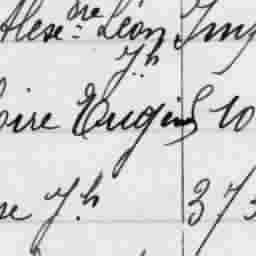 Alexdre Léon
Jh
oire Eugène 10
se Jh 373